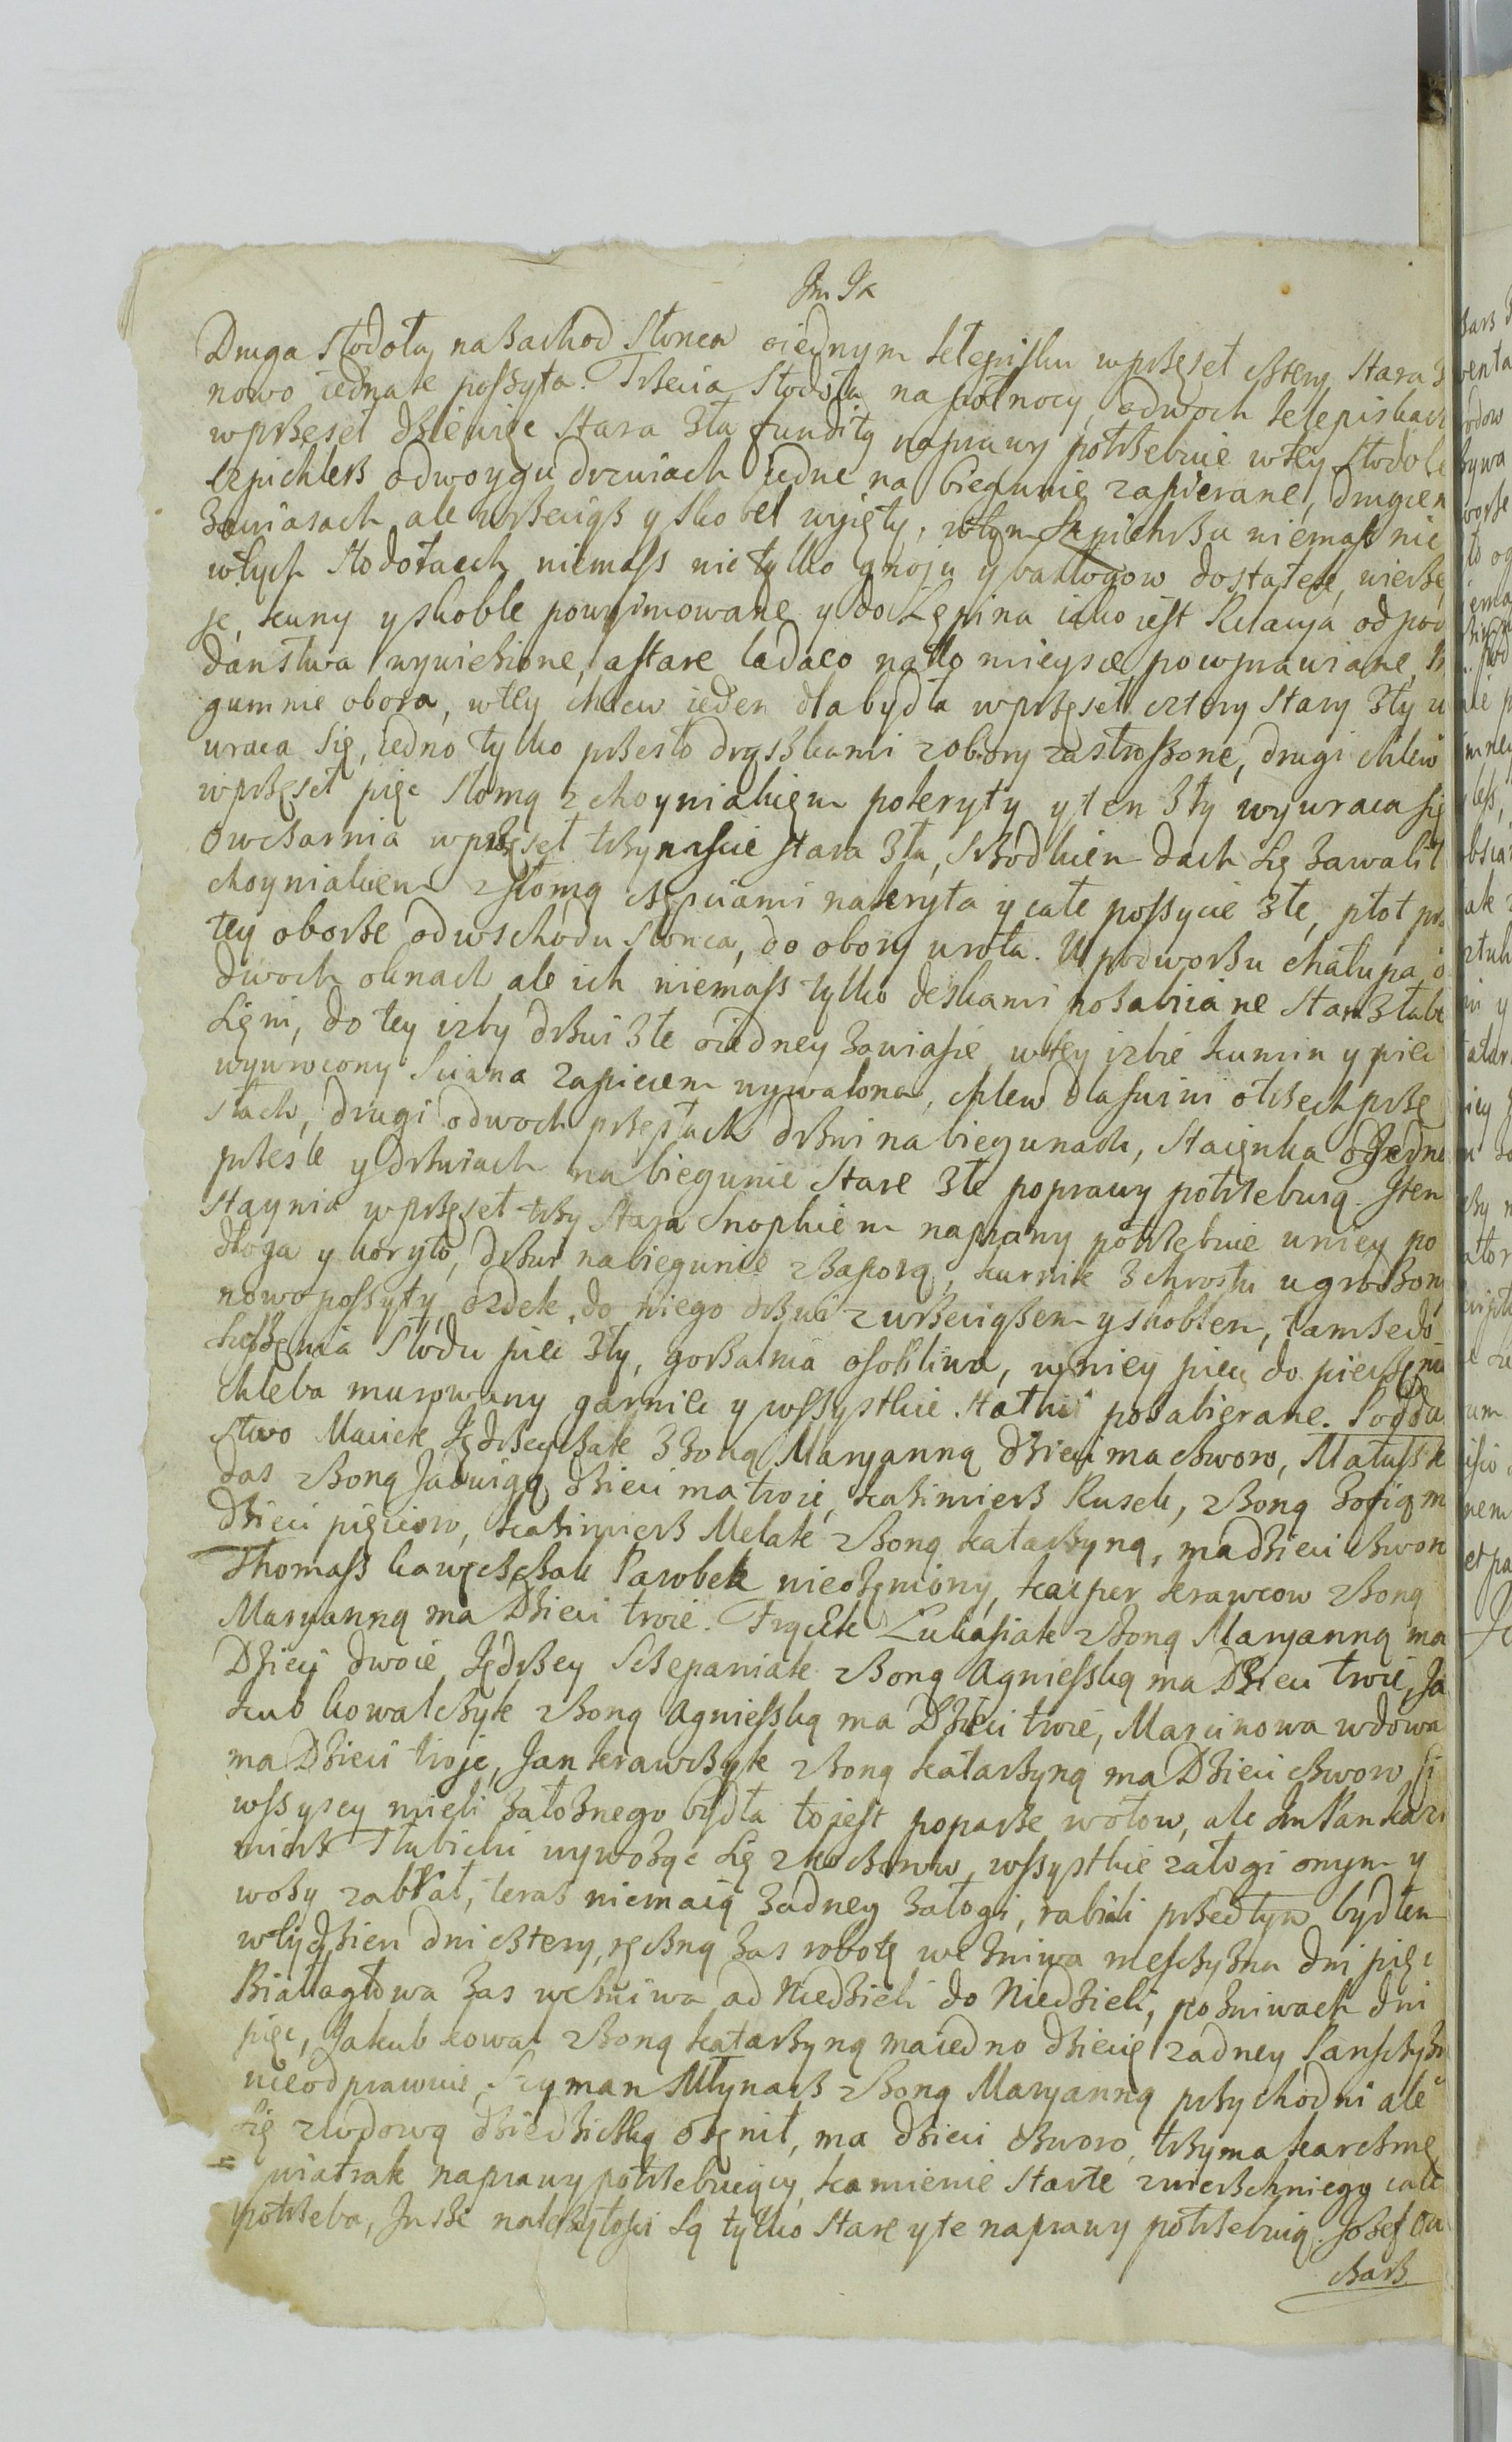 Druga stodoła na Zachod słonca o iednym sklepisku wprzęseł cztery stara
nowo iednak poszyta. Trzecia stodoła na połnocy odwoch sklepiskach
wprzęseł dziewięc stara zła funditg naprawy potrzebuie wtey stodole
szpichlerz odwoygu drzwiach iedne na biegunie zapierane, drugie
zawiasach ale wrzeciądz y skobel wyięty, wtym szpichrzu niemasz nic
wtych stodołach niemasz nic tylko gnoju y barłogow dostatek, wierze
je, kuny y skoble powyimowane y do Łępina iako iest Relacya od pod
danstwa wywiezione, a stare ladaco na to mieysce powprawiane,
gumnie obora, wtey chlew ieden dla bydła wprzęseł cztery stary zły
wraca się, iedno tylko przesło dryszkami zobory zastroszone, drugi chlew
wprzęseł pięc słomą z choyniakiem pokryty y ten zły wywraca się
owczarnia wprzęseł trzynascie stara zła, srzodkiem dach się zawalił
choyniakiem z słomą częsciami nakryta y całe poszycie złe, płot prz
tey oborze odwschodu słonca, do obory wrota. W podworzu chałupa o
dwoch oknach ale ich niemasz tylko deskami pozabiiane stara
Sięni, do tey izby drzwi złe oiedney zawiasie wtey izbie kumin y piec
wywrocony sciana zapiecem wywalona, chlew dla swini otrzech prze
słach, drugi odwoch przesłach drzwi na biegunach, staięnka o Jedne
przesle y drzwiach na biegunie stare złe poprawy potrzebuią. Item
staynia wprzęseł trzy stara snopkiem naprawy potrzebuie wniey po
dłoga y koryto, drzwi nabiegunie zzaporą, kurnik z chrostu ugrodzony
nowo poszyty, ozdek, do niego drzwi z wrzeciądzem y skoblem, tamze do
suszenia słodu piec zły, gorzalnia osobliwa, w niey piec do pieczęnia
chleba murowany garniec y wszystkie statki pozabierane. Podda
stwo Maciek Jędrzeyczak z żoną Maryanną dzieci ma czworo, Matuszk
das zzoną Jadwigą dzieci ma troie, kazimierz Rusek, zzoną Zofią m
dzieci pięcioro, kazimierz Melak zzoną katarzyną, ma dzieci czworo
Thomasz kawęczczak Parobek nieożęniony, kacper krawcow zzoną
Maryanną ma Dzieci troie. Frącek Łukasiak zżoną Maryanną ma
Dzieci dwoie Jędrzey Sczepaniak zzoną Agnieszką ma Dzieci troie, Ja
kub kowalczyk zzoną Agnieszką ma Dzieci troie, Marcinowa wdowa
ma Dzieci troje, Jan krawczyk zzoną katarzyną ma Dzieci czworo,
wszyscy mieli załoznego bydła to jest poparze wołow, ale Jm Pan kazi
mierz Tłubicki wywożąc się wszystkie załogi onym y
wozy zabrał, teraz niemaią zadney załogi, rabiali przedtym bydłem
wtydzien dni cztery, ręczną zas robotę we zniwa męsczyzna dni pięc
Białłagłowa zas wezniwa od Niedzieli do Niedzieli, pozniwach dni
pięc, Jakub kowal zzoną katarzyną maiedno dziecię zadney Pansczyzn
nieodprawuie, Szyman Młynarz zzoną Maryanną przychodni ale
się zwdową dziedziczką ożęnił, ma dzieci czworo, trzyma karczmę
wiatrak naprawy potrzebuiący, kamienie starte zwierzchniego cale
potrzeba, Jnsze nalezytosci są tylko stare y te naprawy potrzebuią. Jozef